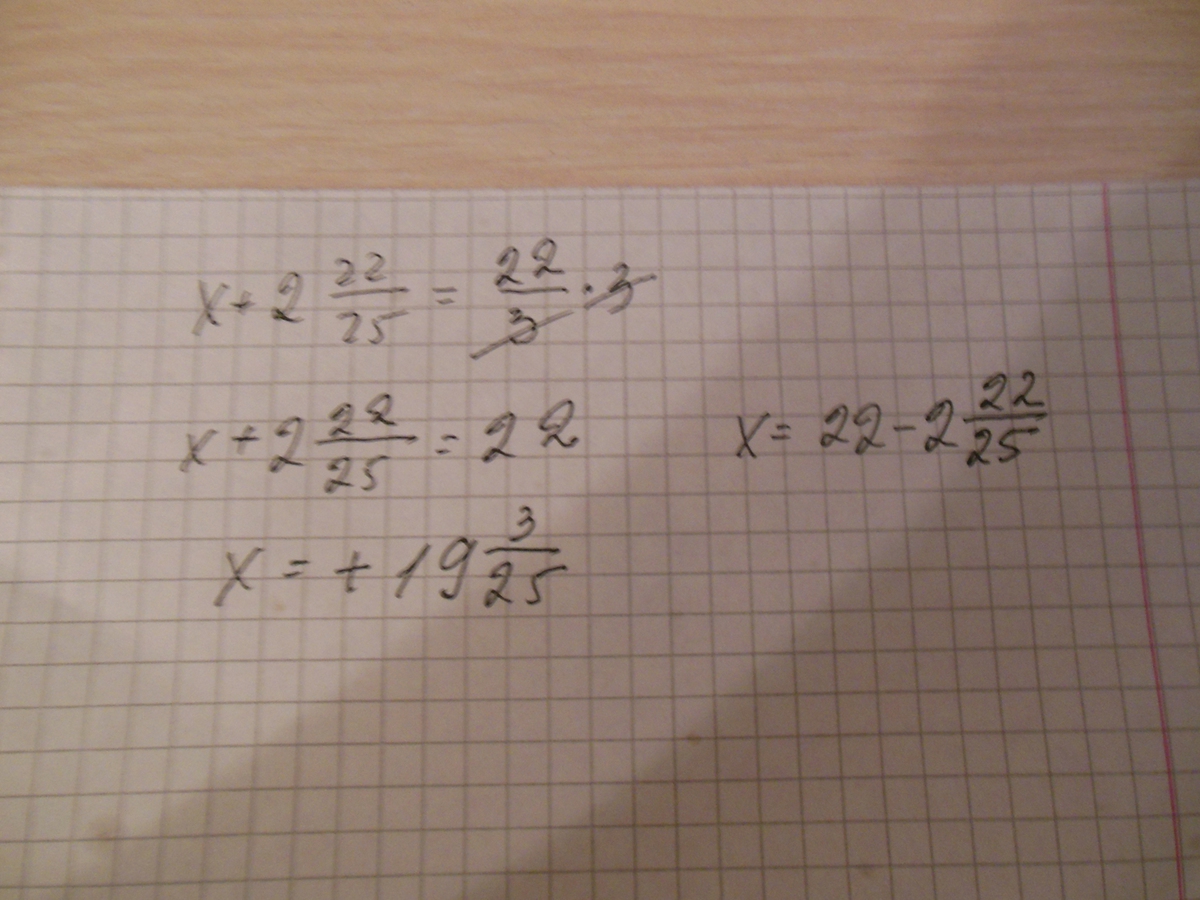 x + 2 22/25 = 22/3 · 3
x + 2 22/25 = 22
x = 22 - 2 22/25
x = + 19 3/25